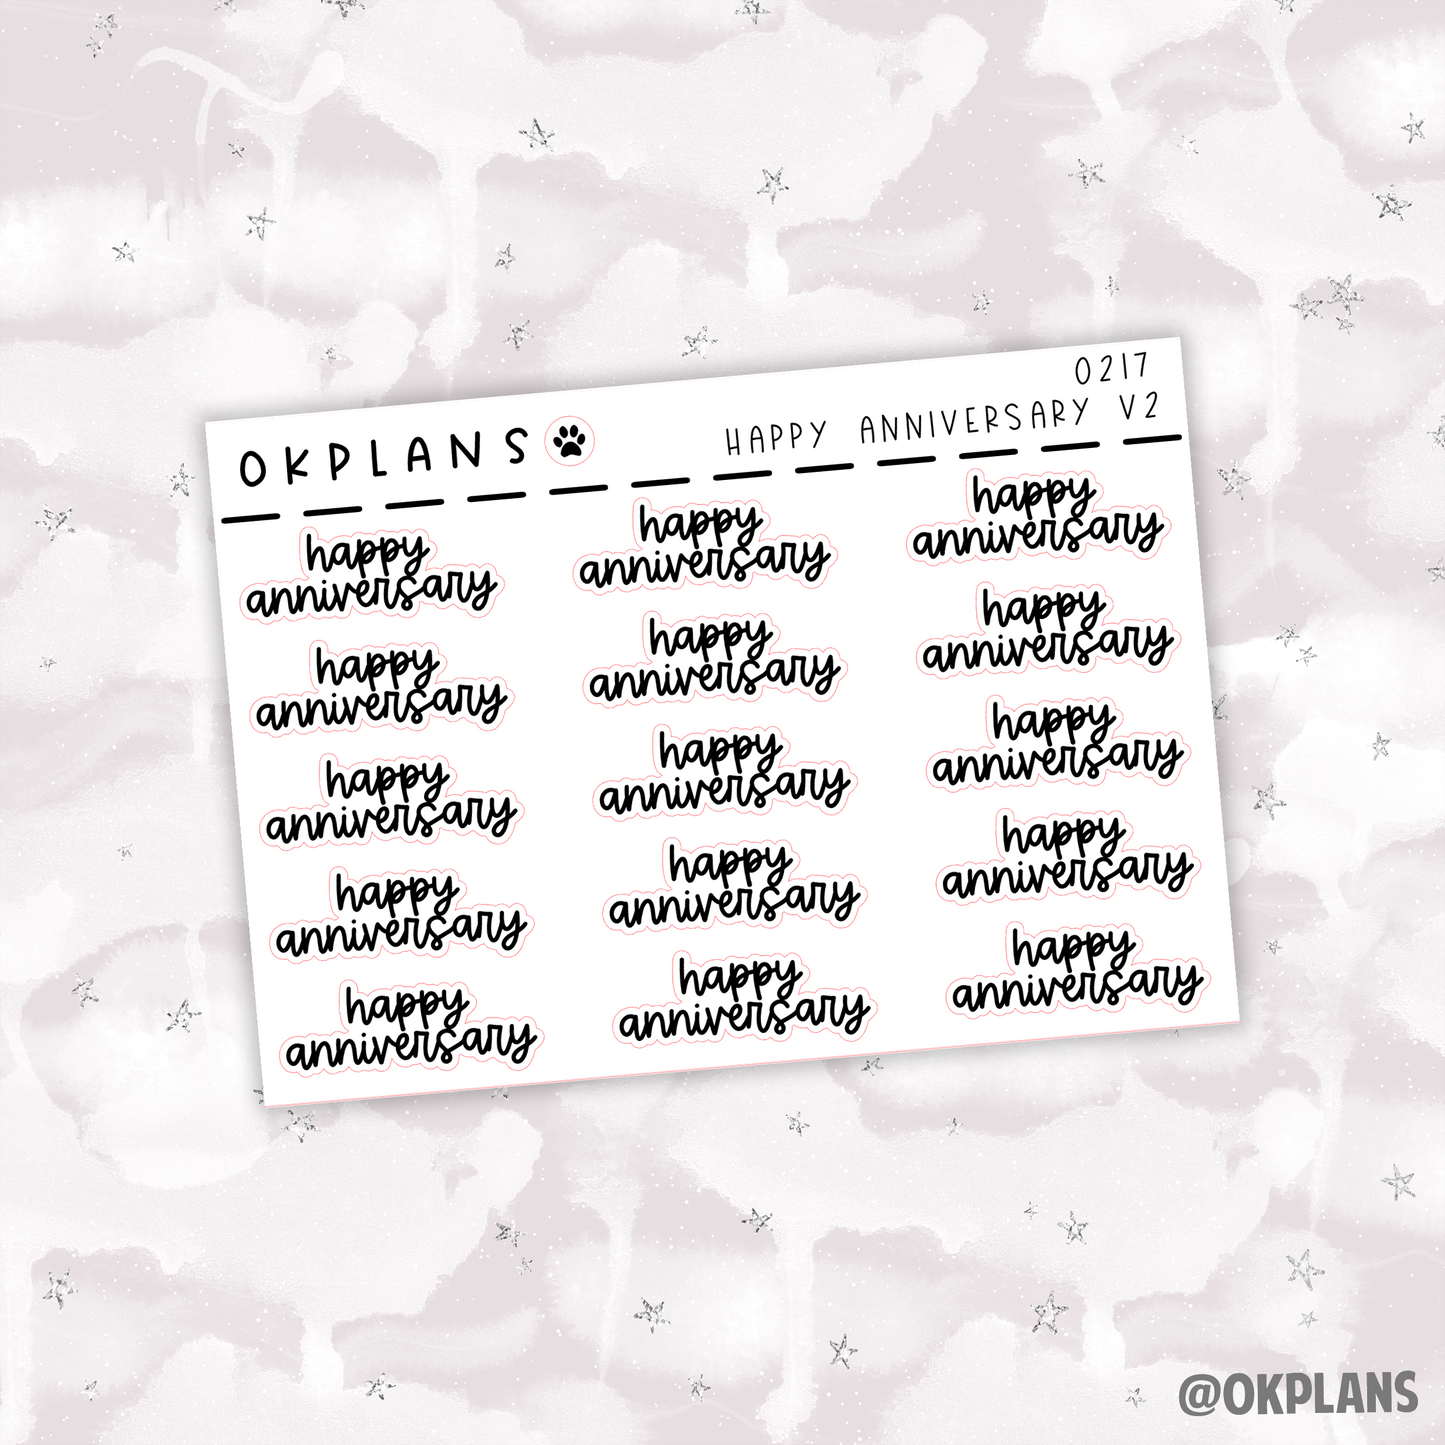 OKPLANS
0217
HAPPY ANNIVERSARY V2
happy
anniversary
happy
anniversary
happy
anniversary
happy
anniversary
happy
anniversary
happy
anniversary
happy
anniversary
happy
anniversary
happy
anniversary
happy
anniversary
happy
anniversary
happy
anniversary
happy
anniversary
happy
anniversary
happy
anniversary
@OKPLANS